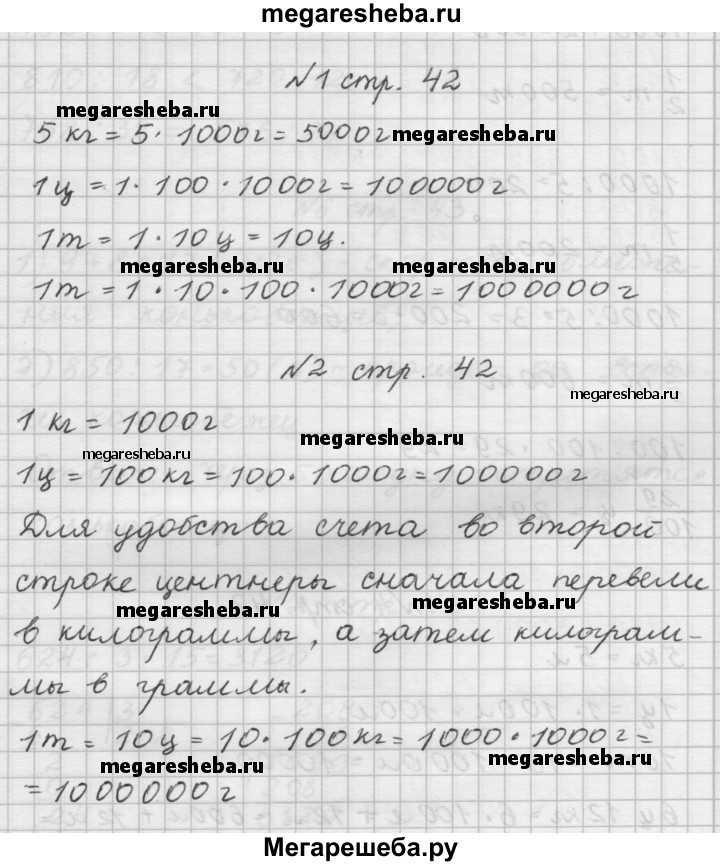 megaresheba.ru
N1 стр. 42
megaresheba.ru
5 кг = 5 · 1000 г = 5000 г megaresheba.ru
1 ц = 1 · 100 · 1000 г = 100000 г
1 т = 1 · 10 ц = 10 ц.
megaresheba.ru megaresheba.ru
1 т = 1 · 10 · 100 · 1000 г = 1000000 г
N2 стр. 42
megaresheba.ru
1 кг = 1000 г
megaresheba.ru
megaresheba.ru
1 ц = 100 кг = 100 · 1000 г = 100000 г
Для удобства счета во второй
строке центнеры сначала перевели
megaresheba.ru megaresheba.ru
в килограммы, а затем килограм-
мы в граммы.
1 т = 10 ц = 10 · 100 кг = 1000 · 1000 г =
megaresheba.ru megaresheba.ru
= 1000000 г
Мегарешеба.ру